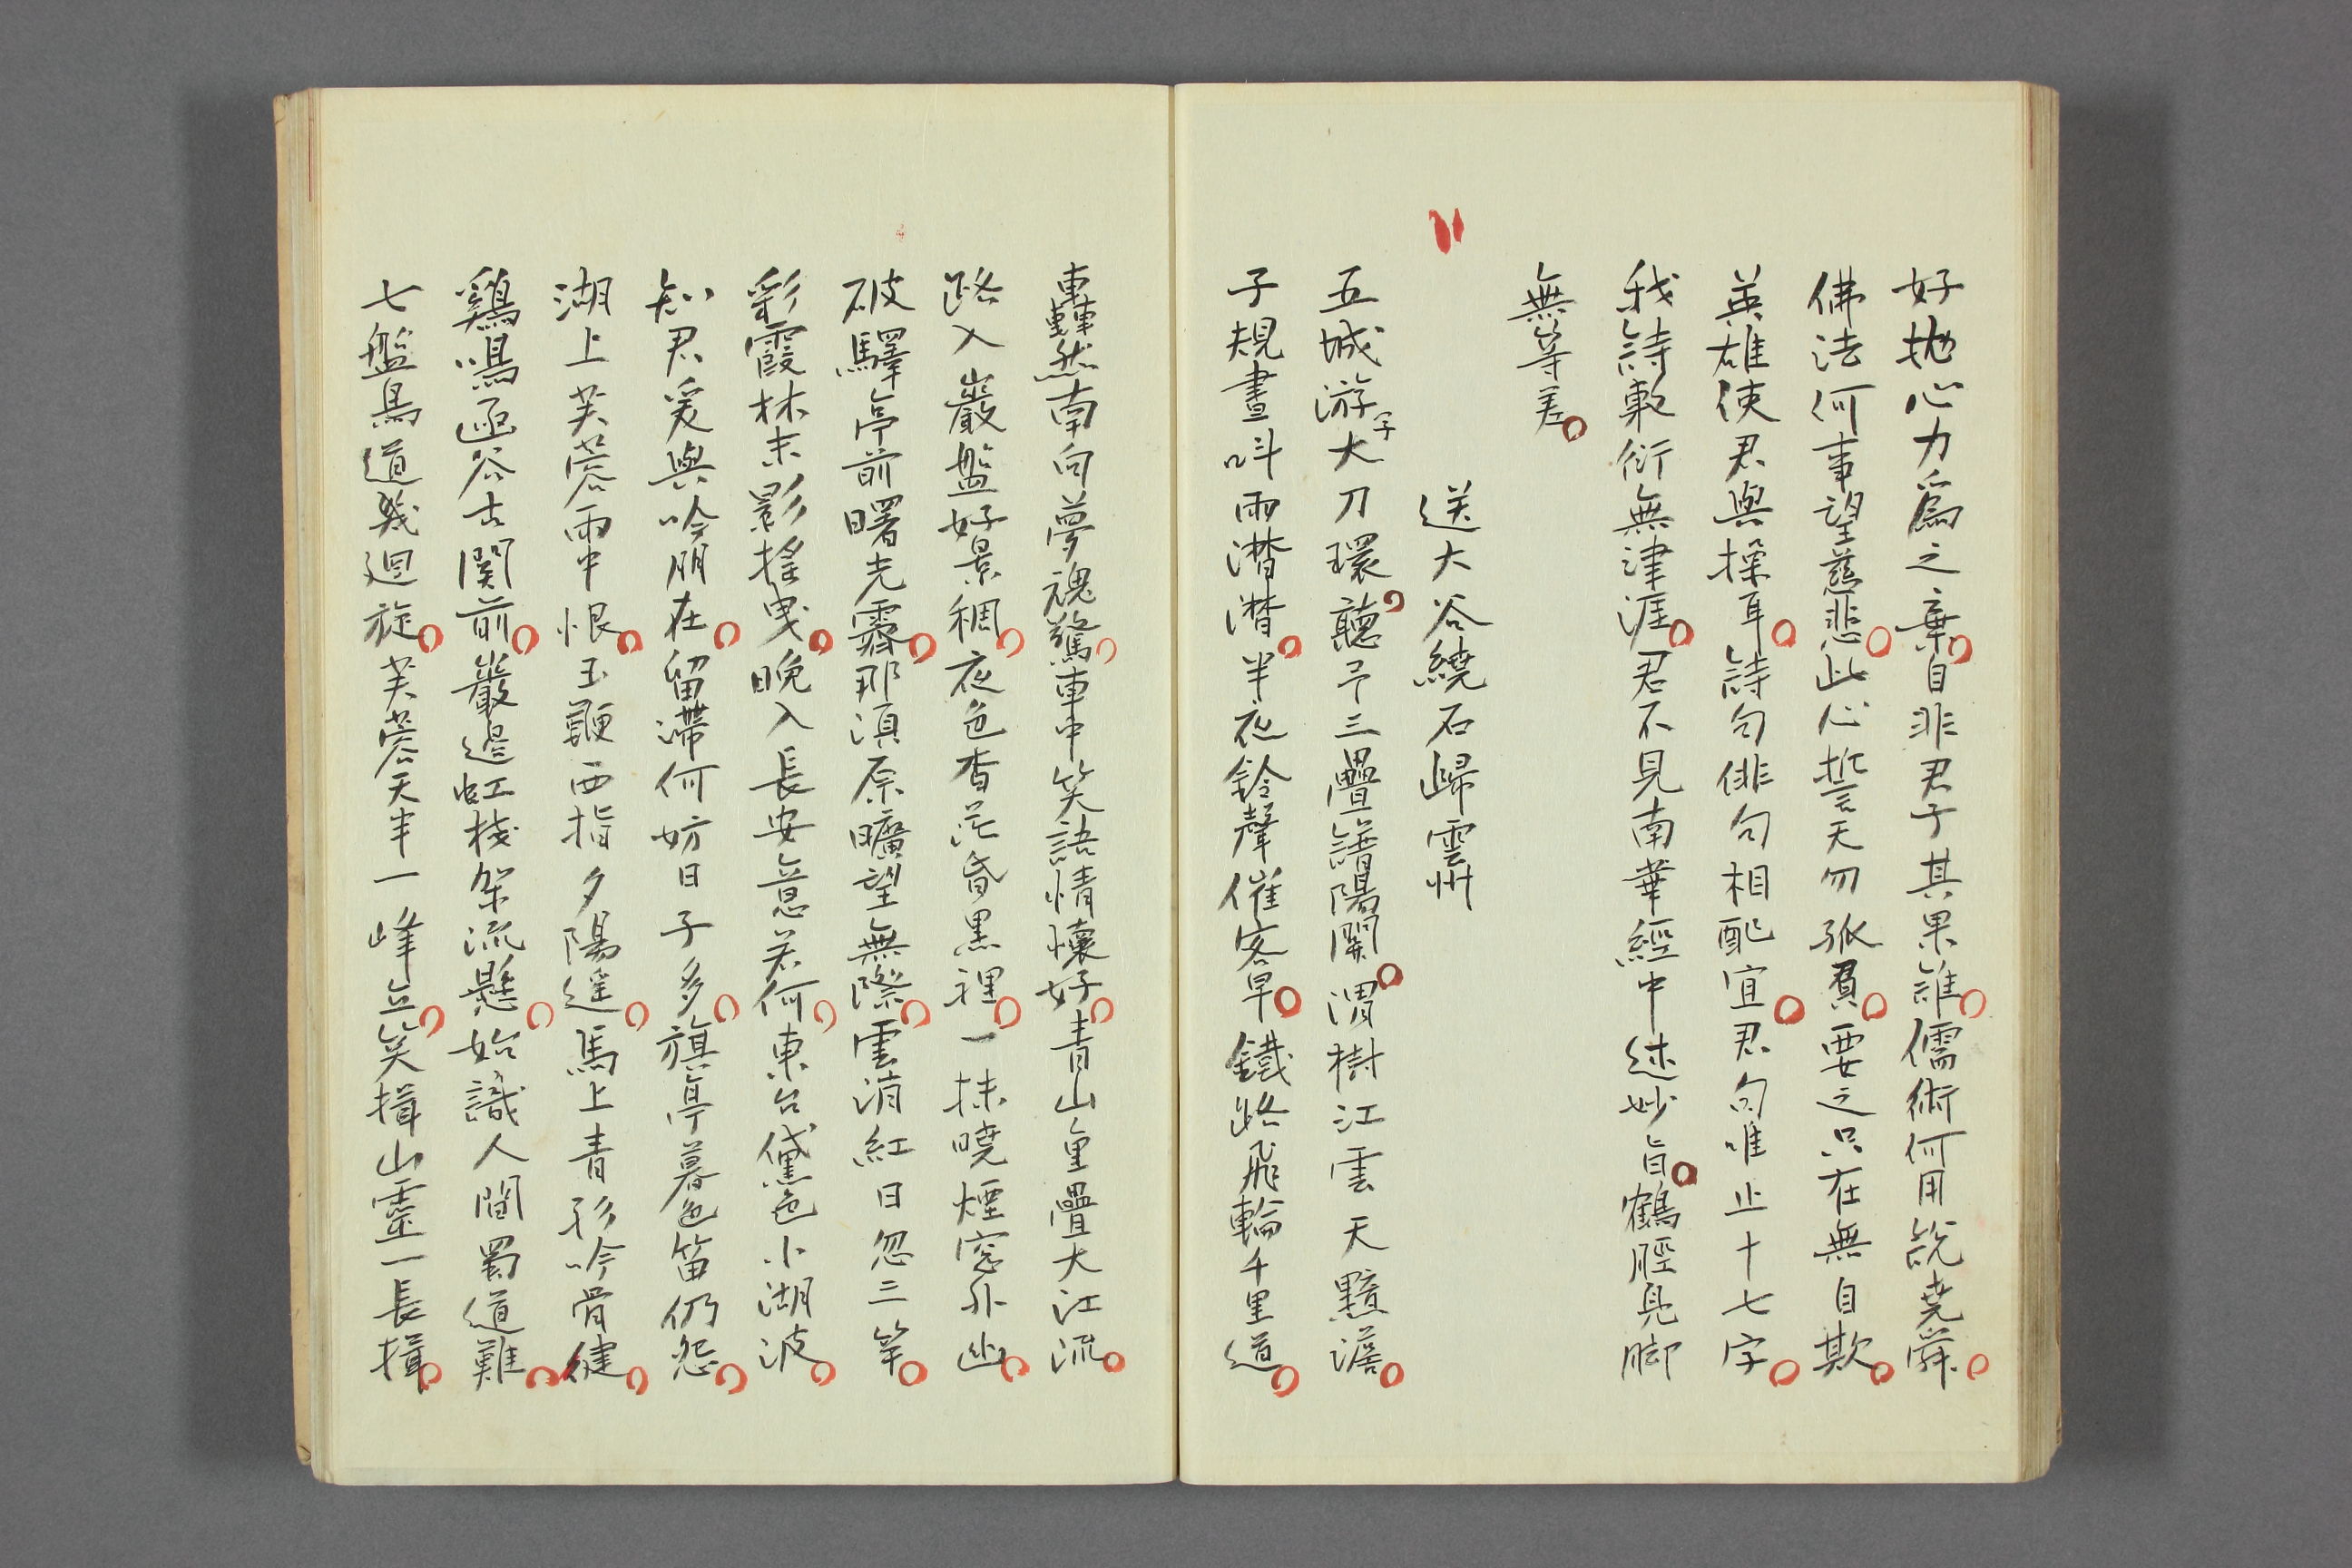 好抛心力爲之棄自非君子其果誰儒術何用說堯舜
佛法何事望慈悲此心誓天勿孤負要之只在無自欺
英雄使君與操耳詩句俳句相配宜君句唯止十七字
我詩敷衍無津涯君不見南華經中述妙旨鶴脛鳧脚
無等差
送大谷繞石歸雲州
五城游子大刀環聽予三疊譜陽關渭樹江雲天黯澹
子規晝叫雨潸潸半夜鈴聲催客早鐵路飛輪千里道
轟然南向夢魂驚車中笑語情懷好青山重疊大江流
路入巖盤好景稠夜色杳茫昏黑裡一抹曉煙窓外幽
破驛亭前曙光霽那湏原曠望無際雲消紅日忽三竿
彩霞林末影搖曳晚入長安意若何東台黛色小湖波
知君爰與吟朋在留滯何妨日子多旗亭暮色笛仍怨
湖上芙蓉雨中恨玉鞭西指夕陽遥馬上青衫吟骨健
鷄鳴函谷古関前巖邉虹棧架流懸始識人間蜀道難
七盤鳥道幾迴旋芙蓉天半一峰立笑揖山靈一長揖